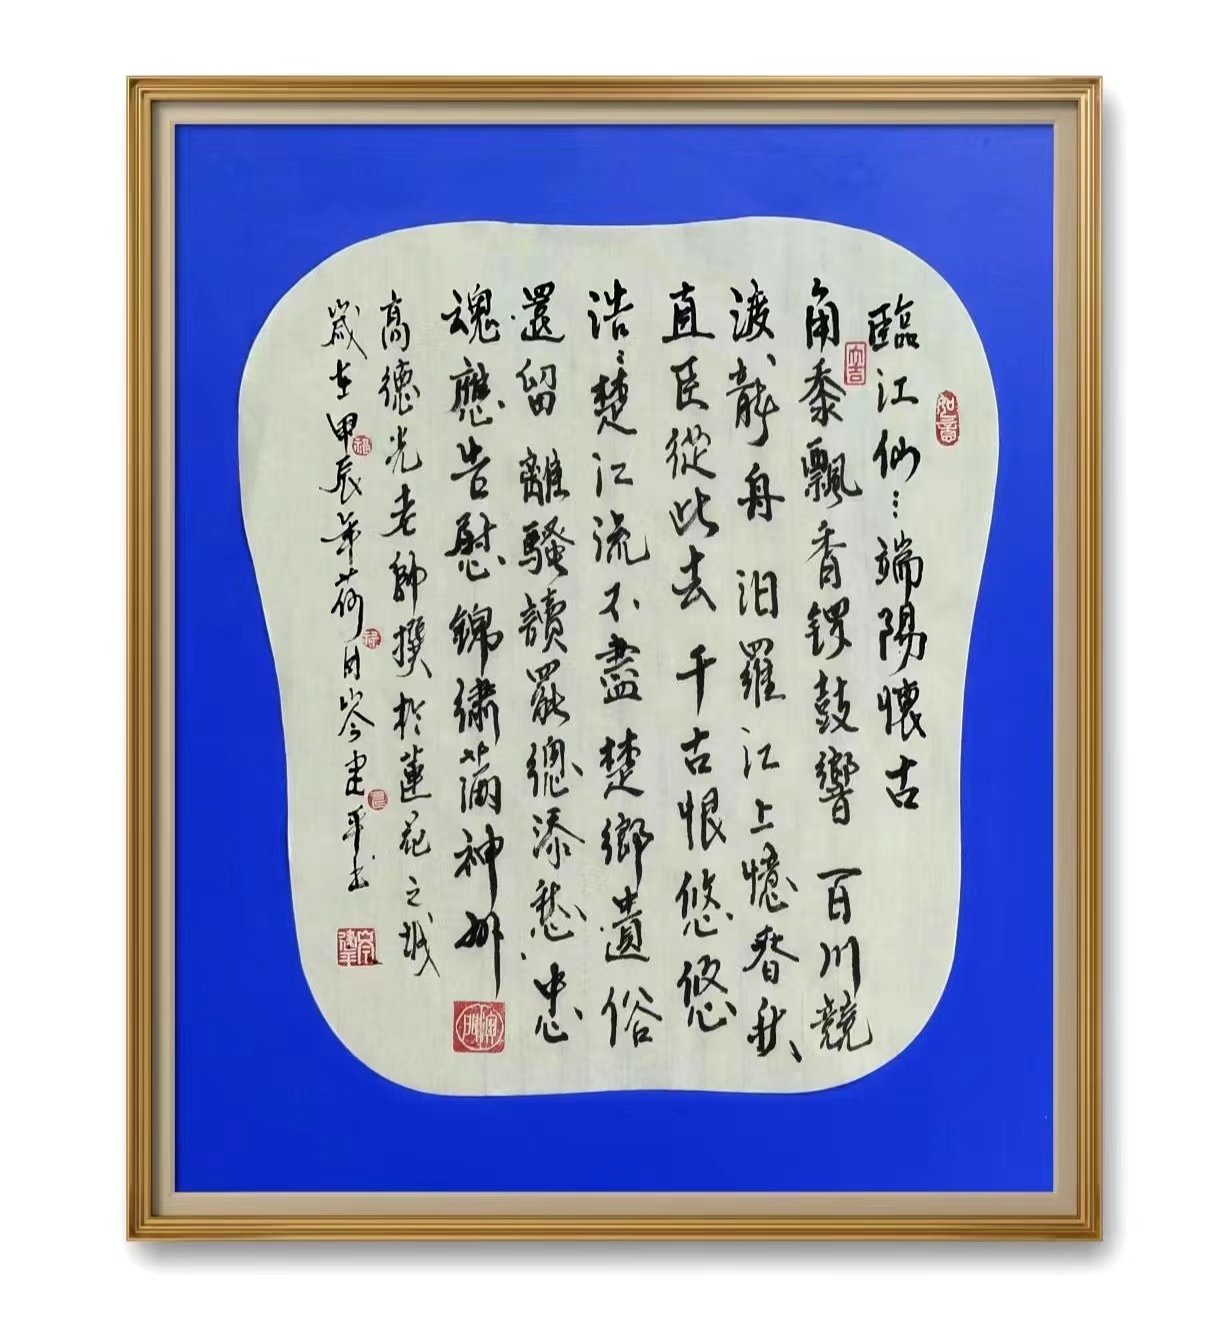 臨江仙：端陽懷古
角黍飄香锣鼓響 百川競
渡龍舟 汨羅江上憶春秋
直臣從此去 千古恨悠悠
浩浩楚江流不盡 楚鄉遺俗
還留 離騷讀罷總添愁 忠
魂應告慰 錦繡滿神州
高德光老師撰於蓮花之城
歲在甲辰年荷月岑建平書
如意
大吉